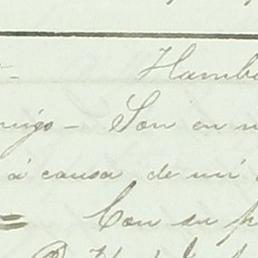 Hamb
migo - Son en m
á causa de mi
Con su p